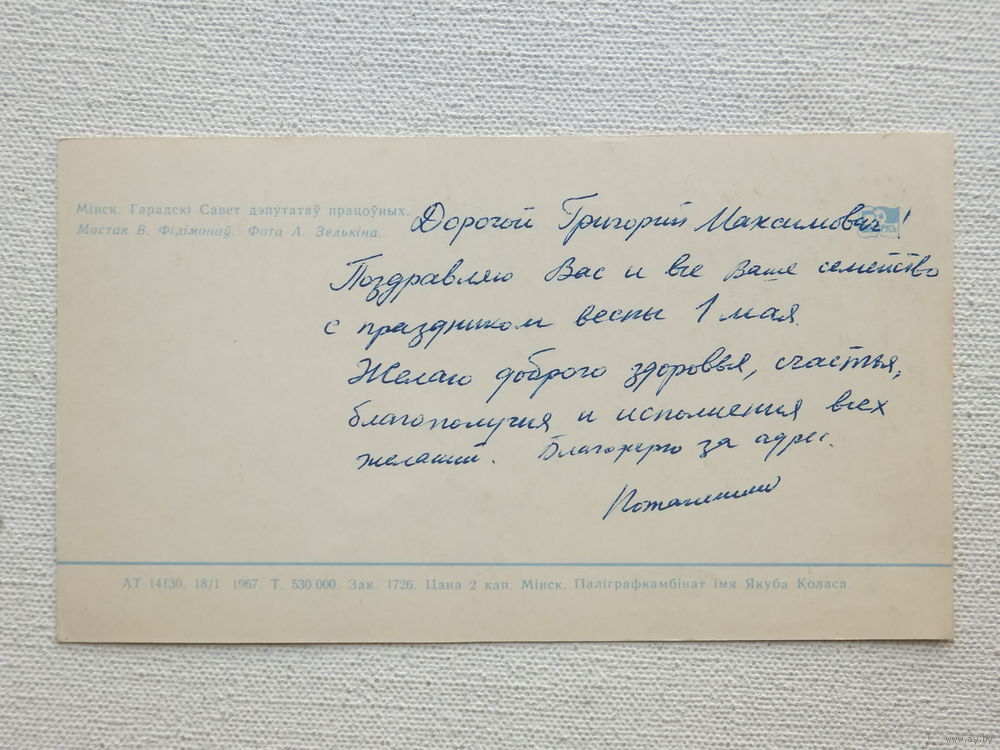 Мінск. Гарадскі Савет дэпутатаў працоўных.
Мастак В. Філімонаў. Фота А. Зелькіна.
Дорогой Григорий Максимович!
Поздравляю Вас и все Ваше семейство
с праздником весны 1 мая.
Желаю доброго здоровья, счастья,
благополучия и исполнения всех
желаний. Благодарю за адрес.
АТ 14130. 18/I 1967. Т. 530 000. Зак. 1726. Цана 2 кап. Мінск. Паліграфкамбінат імя Якуба Коласа.
www.ay.by